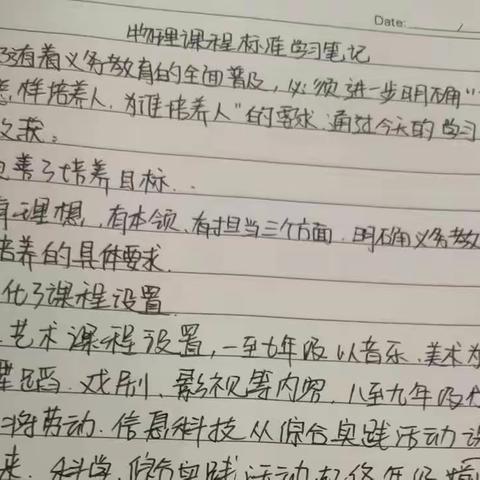 Date: /
物理课程标准学习笔记
有着义务教育的全面普及，必须进一步明确“
怎样培养人，为谁培养人”的要求，通过今天的学习
收获：
善了培养目标..
理想，有本领、有担当三个方面，明确义务教
培养的具体要求.
化了课程设置
艺术课程设置，一至七年级以音乐、美术为
蹈、戏剧、影视等内容，八至九年级
将劳动、信息科技从综合实践活动
来. 科学、综合实践活动起始年级